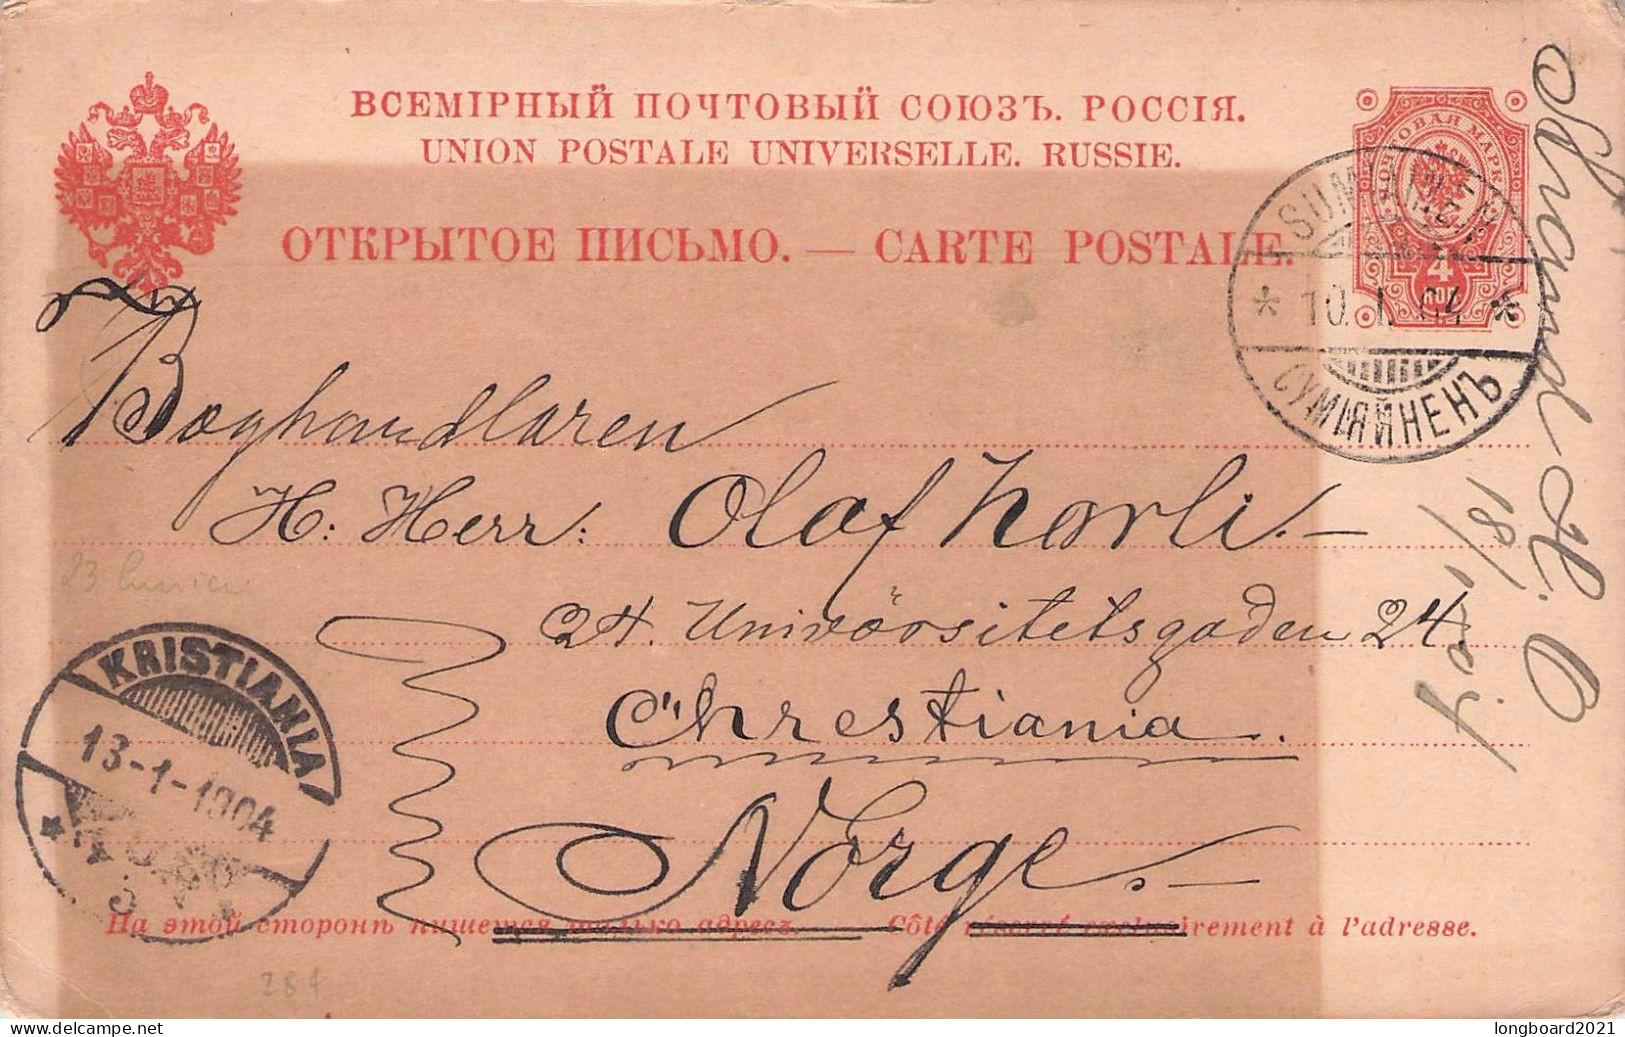 ВСЕМІРНЫЙ ПОЧТОВЫЙ СОЮЗЪ. РОССІЯ.
UNION POSTALE UNIVERSELLE. RUSSIE.
ОТКРЫТОЕ ПИСЬМО. — CARTE POSTALE.
ПОЧТОВАЯ МАРКА
4
КОП
SUMIAINEN
10. I. 04
СУМІЯЙНЕНЪ
Boghandlaren
H: Herr: Olaf Norli.—
24. Univörsitetsgaden 24.
Chrestiania.
Norge.—
KRISTIANIA
13-1-1904
18/1 04
23
На этой сторонѣ пишется только адресъ. — Côté réservé exclusivement à l'adresse.
284
longboard2021